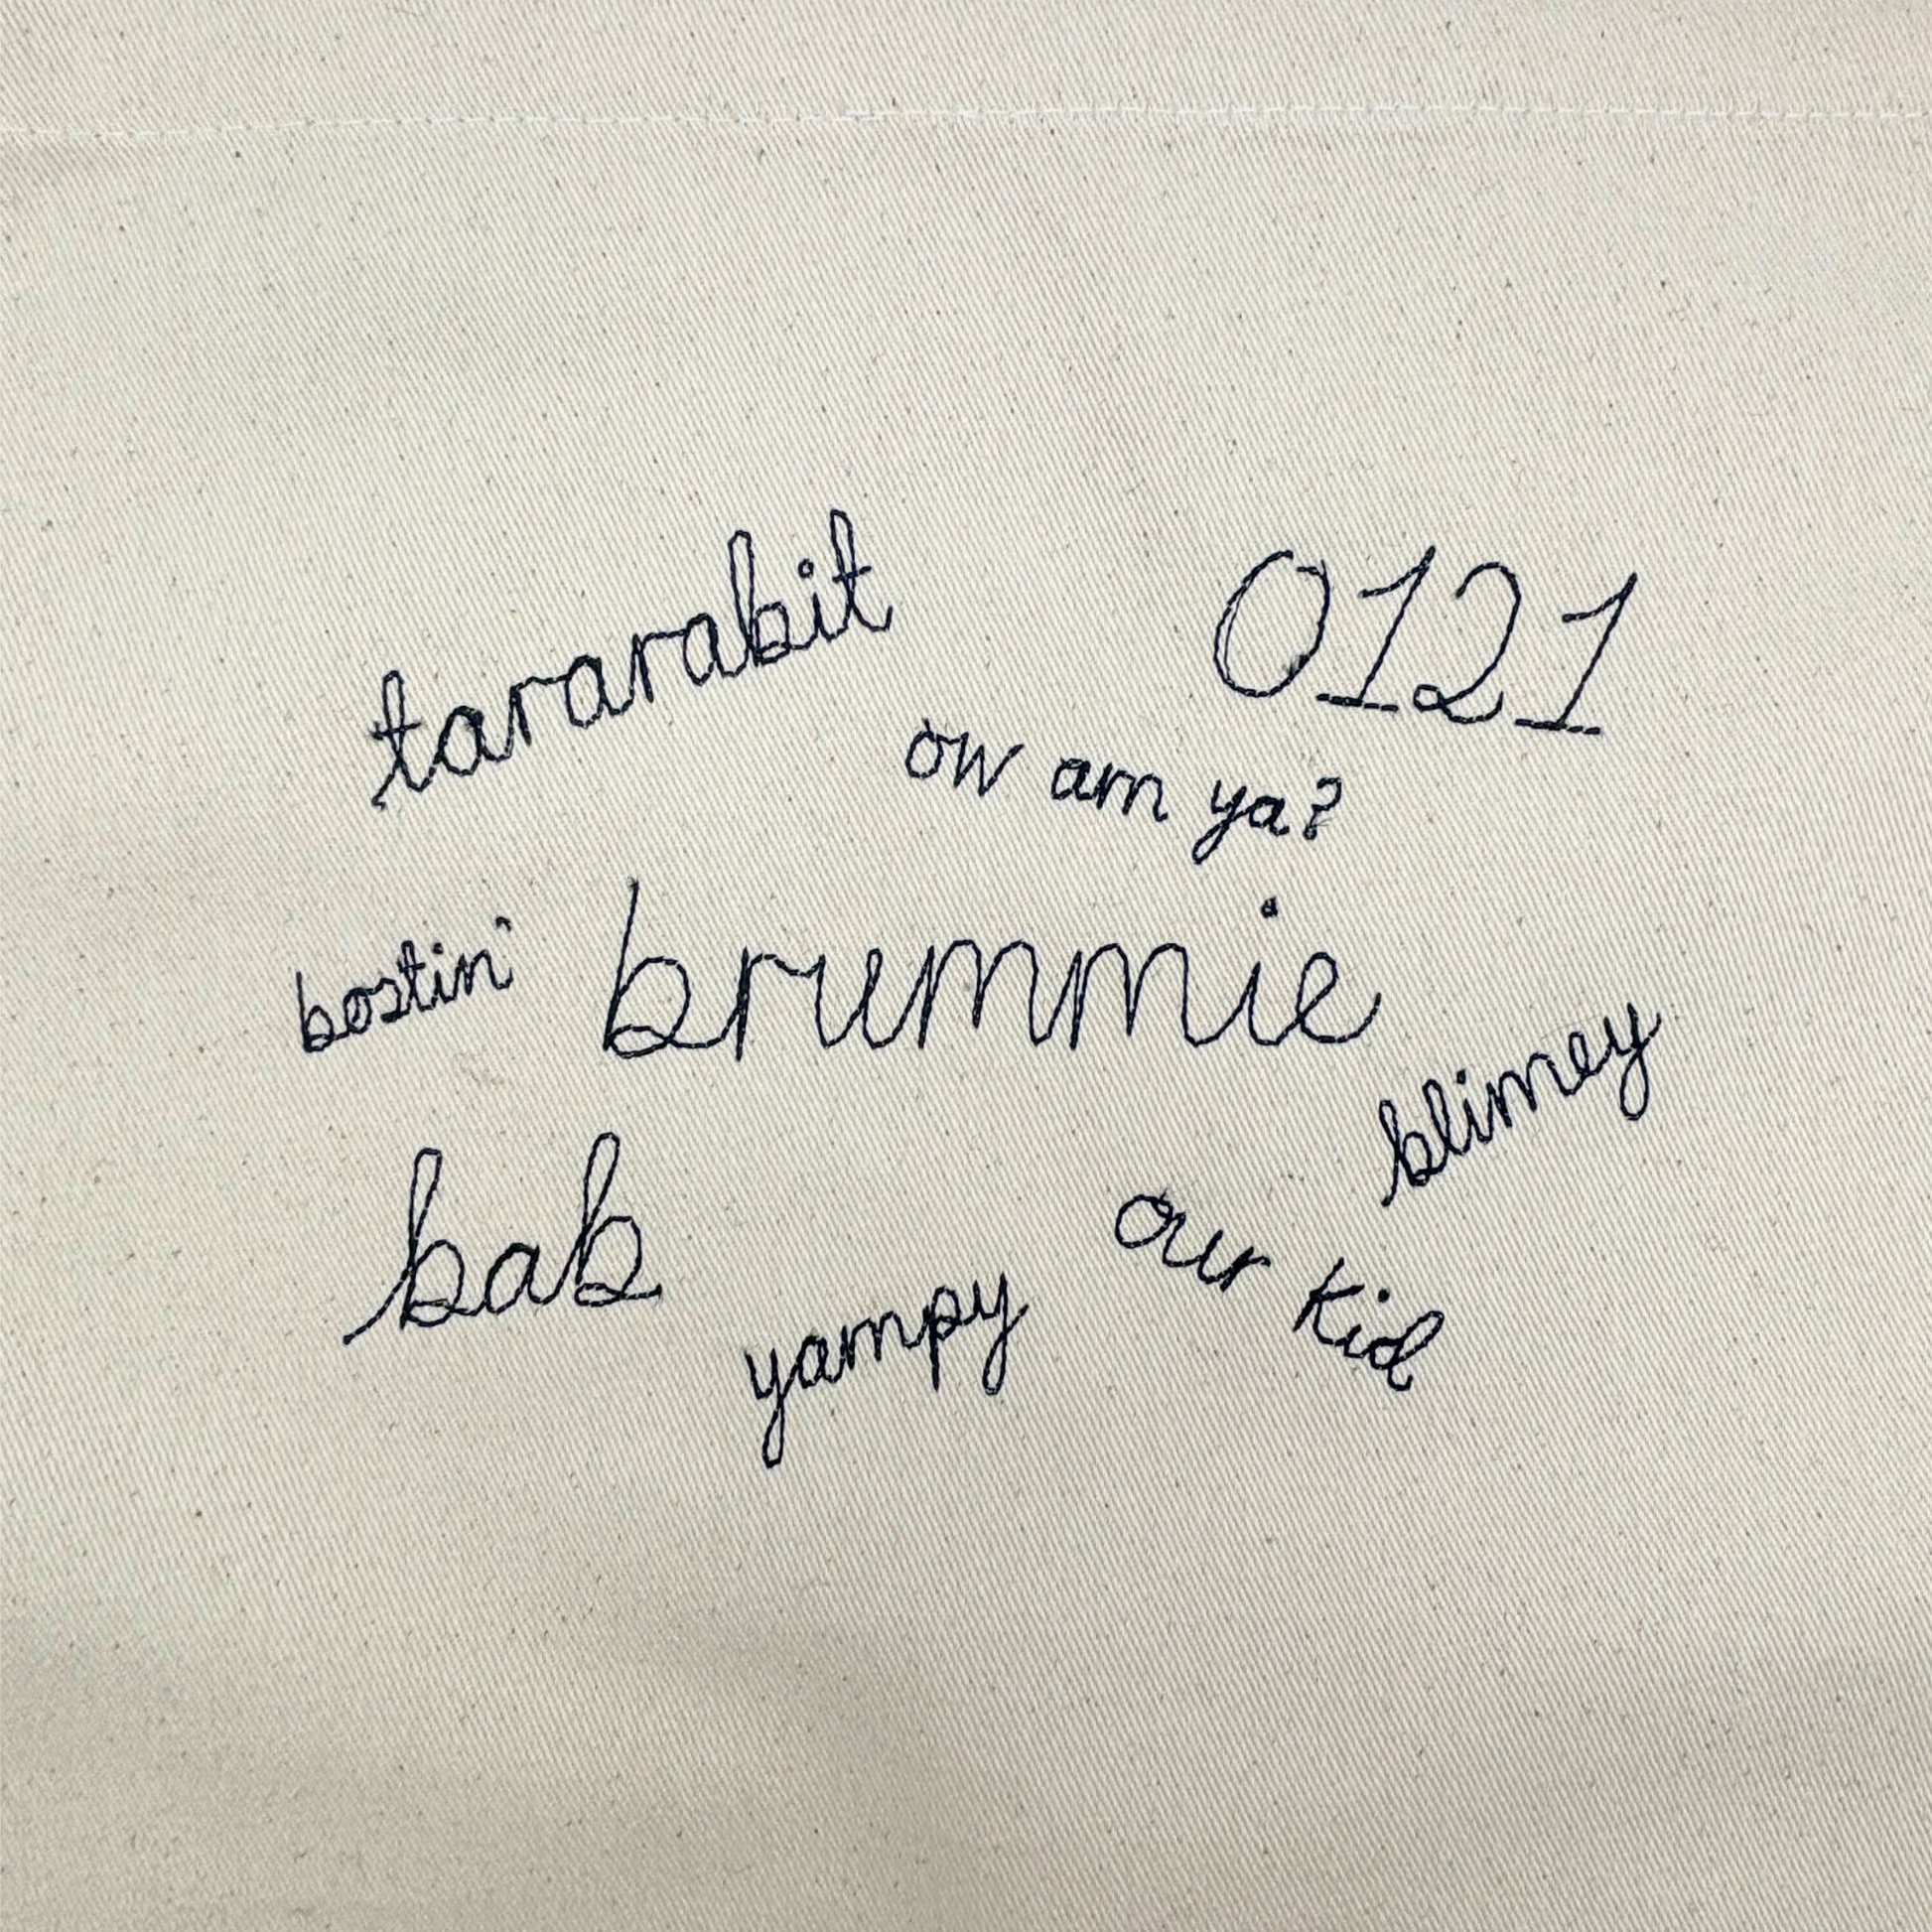 tararabit
0121
ow am ya?
bostin'
brummie
blimey
bab
our kid
yampy